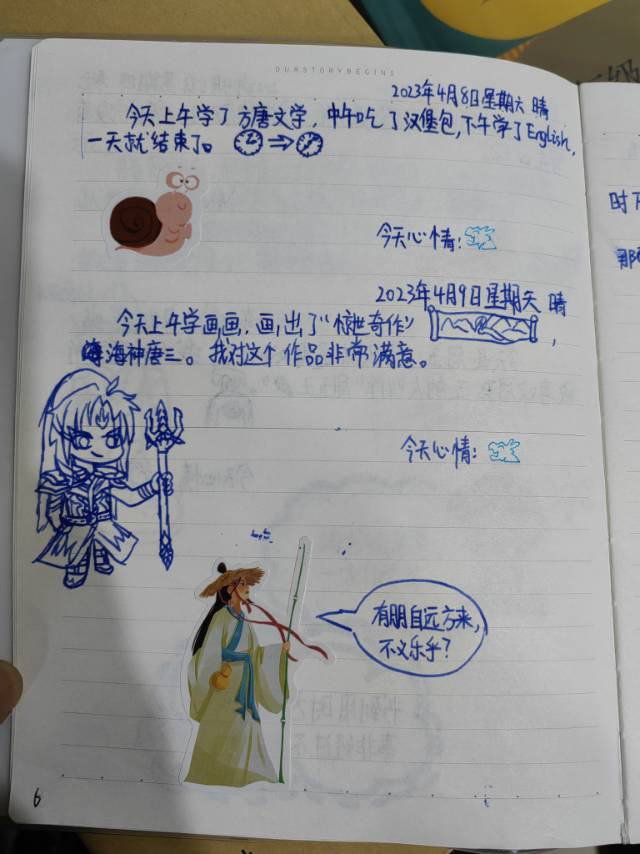 OURSTORYBEGINS
2023年4月8日星期六 晴
今天上午学了方唐文学,中午吃了汉堡包,下午学了English,
一天就结束了。
今天心情:
2023年4月9日星期天 晴
今天上午学画画,画出了"惊世奇作"
海神唐三。我对这个作品非常满意。
今天心情:
有朋自远方来,
不乂乐乎?
6
时下
那